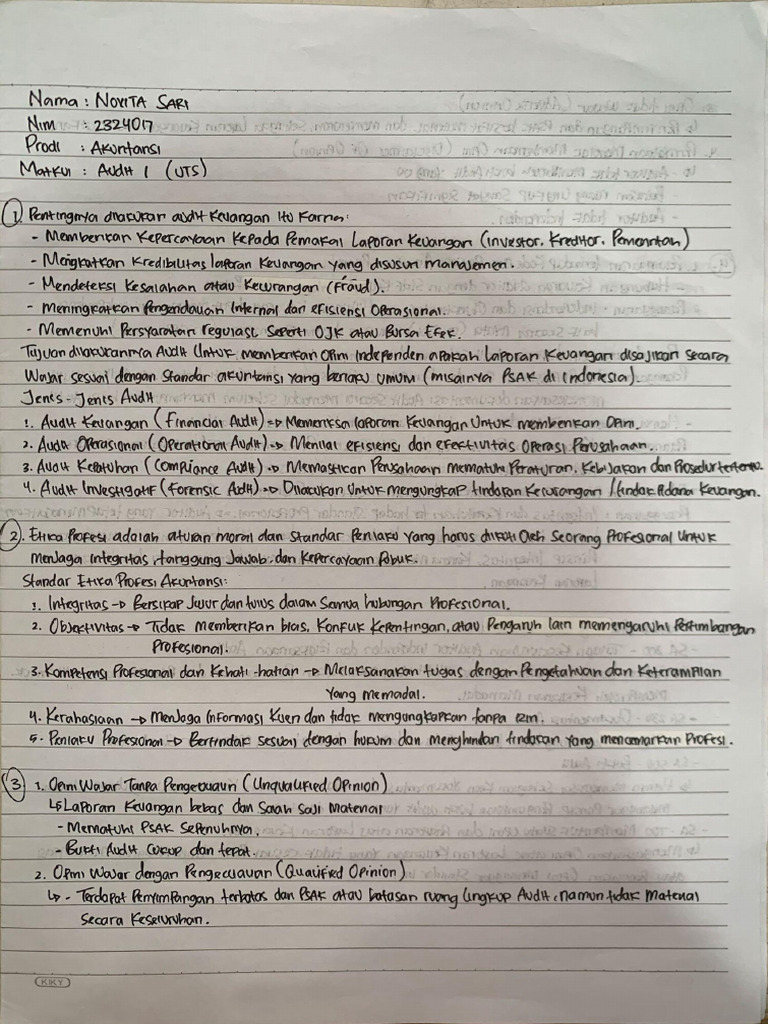 Nama : NOVITA SARI
Nim : 2324017
Prodi : Akuntansi
Matkul : Audit 1 (UTS)
1. Pentingnya dilakukan audit keuangan itu karna :
- Memberikan kepercayaan kepada pemakai laporan keuangan (investor, kreditor, pemerintah)
- Meningkatkan kredibilitas laporan keuangan yang disusun manajemen.
- Mendeteksi kesalahan atau kecurangan (fraud).
- Meningkatkan pengendalian internal dan efisiensi operasional.
- Memenuhi persyaratan regulasi seperti OJK atau Bursa Efek.
Tujuan dilakukannya Audit untuk memberikan opini independen apakah laporan keuangan disajikan secara
wajar sesuai dengan standar akuntansi yang berlaku umum (misalnya PSAK di Indonesia).
Jenis-Jenis Audit
1. Audit Keuangan (Financial Audit) => Memeriksa laporan keuangan untuk memberikan opini.
2. Audit Operasional (Operational Audit) => Menilai efisiensi dan efektivitas operasi perusahaan.
3. Audit Kepatuhan (Compliance Audit) => Memastikan perusahaan mematuhi peraturan, kebijakan dan prosedur tertentu.
4. Audit Investigatif (Forensic Audit) => Dilakukan untuk mengungkap tindakan kecurangan / tindak pidana keuangan.
2. Etika Profesi adalah aturan moral dan standar perilaku yang harus diikuti oleh seorang profesional untuk
menjaga integritas, tanggung jawab, dan kepercayaan publik.
Standar Etika Profesi Akuntansi :
1. Integritas -> Bersikap jujur dan tulus dalam semua hubungan profesional.
2. Objektivitas -> Tidak memberikan bias, konflik kepentingan, atau pengaruh lain memengaruhi pertimbangan
profesional.
3. Kompetensi Profesional dan kehati-hatian -> Melaksanakan tugas dengan pengetahuan dan keterampilan
yang memadai.
4. Kerahasiaan -> menjaga informasi klien dan tidak mengungkapkan tanpa izin.
5. Perilaku Profesional -> Bertindak sesuai dengan hukum dan menghindari tindakan yang mencemarkan profesi.
3 1. Opini Wajar Tanpa Pengecualian (Unqualified Opinion)
↳ Laporan keuangan bebas dari salah saji material
- Mematuhi PSAK sepenuhnya.
- Bukti Audit cukup dan tepat.
2. Opini Wajar dengan Pengecualian (Qualified Opinion)
↳ - Terdapat penyimpangan terbatas dari PSAK atau batasan ruang lingkup Audit, namun tidak material
secara keseluruhan.
KIKY